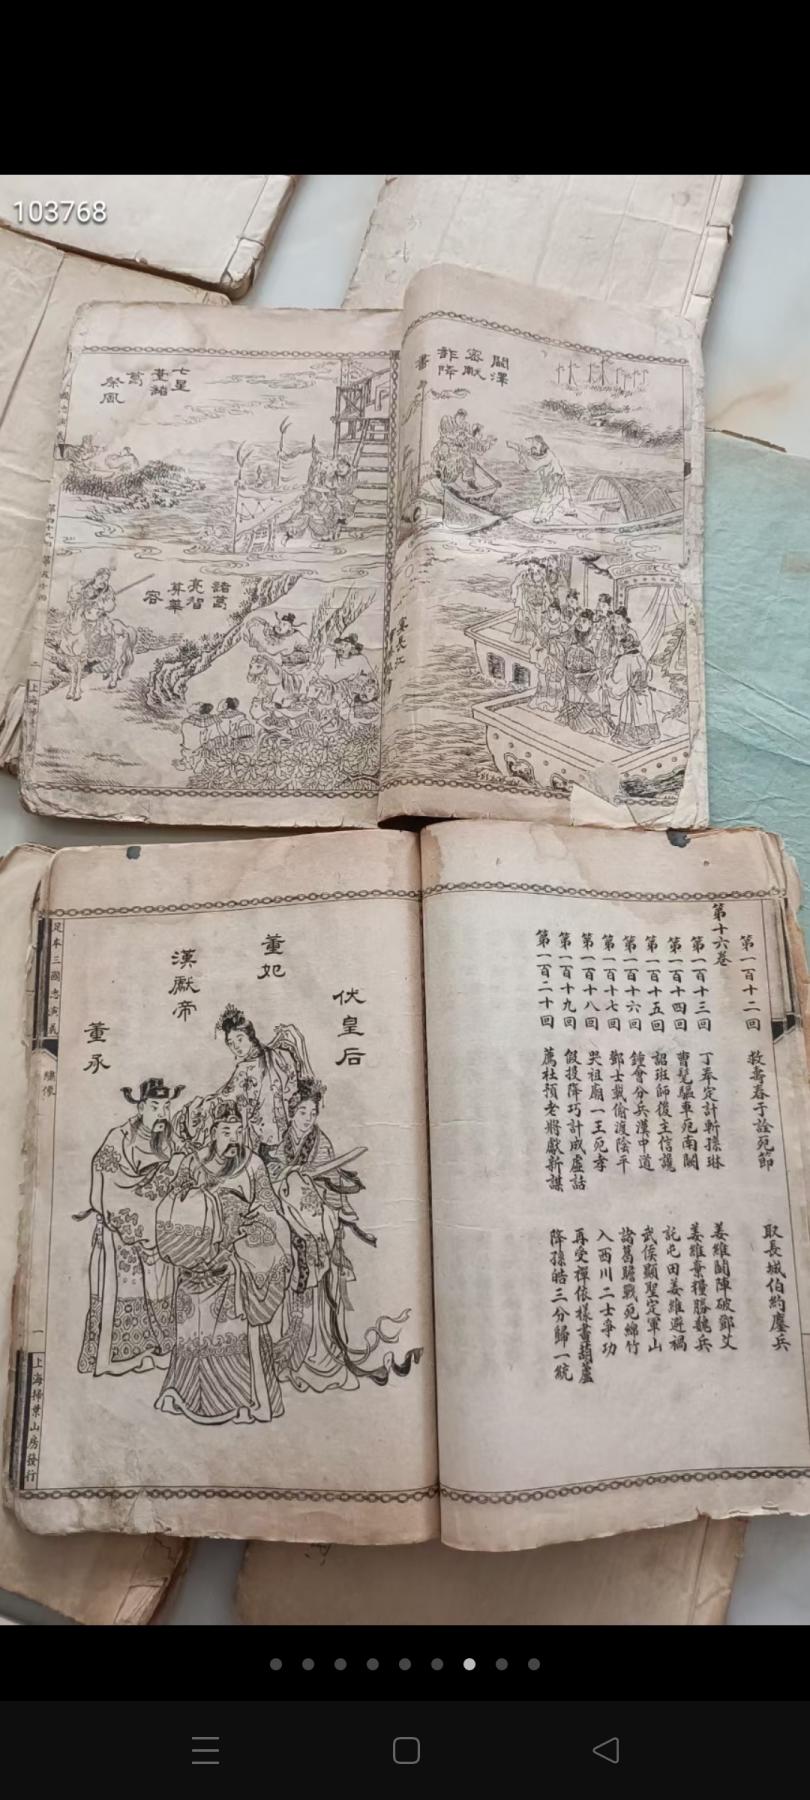 103768
闞澤
密獻
詐降
書
七星
臺諸
葛
祭風
諸葛
亮智
算華
容
宴長江
第一百十二回 救壽春于詮死節 取長城伯約鏖兵
第十六卷
第一百十三回 丁奉定計斬孫琳 姜維鬬陣破鄧艾
第一百十四回 曹髦驅車死南闕 姜維棄糧勝魏兵
第一百十五回 詔班師後主信讒 託屯田姜維避禍
第一百十六回 鍾會分兵漢中道 武侯顯聖定軍山
第一百十七回 鄧士載偷渡陰平 諸葛瞻戰死綿竹
第一百十八回 哭祖廟一王死孝 入西川二士爭功
第一百十九回 假投降巧計成虛話 再受禪依樣畫葫蘆
第一百二十回 薦杜預老將獻新謀 降孫皓三分歸一統
伏皇后
董妃
漢獻帝
董承
足本三國志演義
繡像
一
上海掃葉山房發行